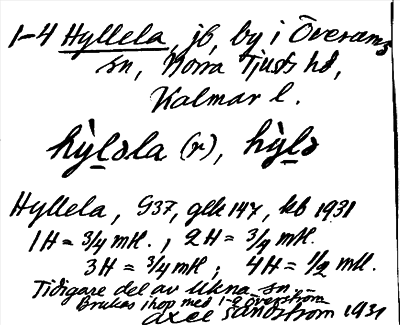 1-4 Hyllela, jb, by i Överums
sn, Norra Tjusts hd,
Kalmar l.
hỳlǝla (r), hỳlǝ
Hyllela, 937, glk 147, kb 1931
1H = 3/4 mtl., 2H = 3/4 mtl.
3H = 3/4 mtl; 4H = 1/2 mtl.
Tidigare del av Ukna sn
Brukas ihop med 1-2 Överström
Axel Sandström 1931